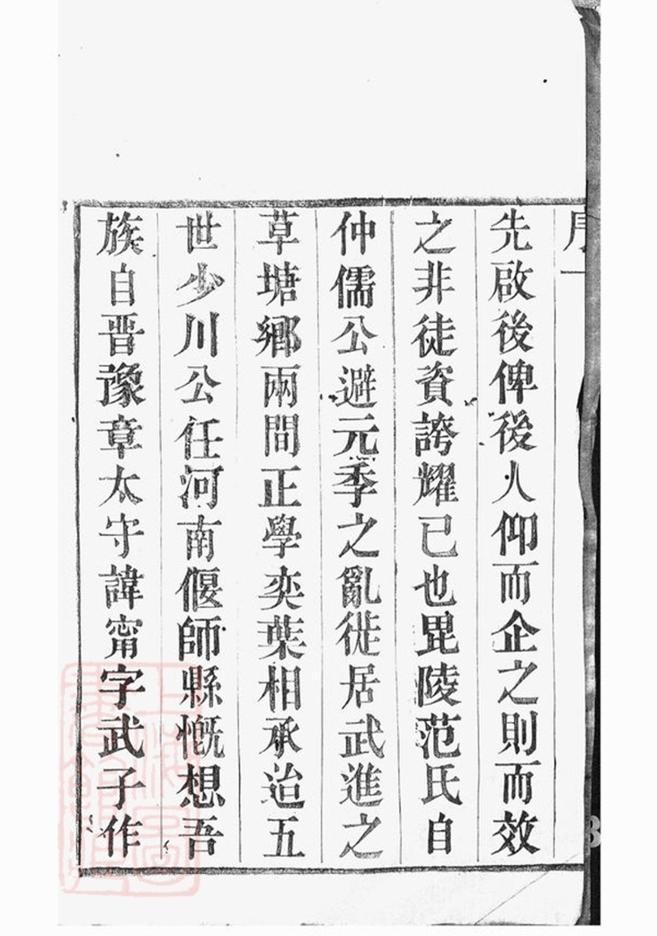 序一
先啟後俾後人仰而企之則而效
之非徒資誇耀已也毘陵范氏自
仲儒公避元季之亂徙居武進之
草塘鄉兩間正學奕葉相承迨五
世少川公任河南偃師縣慨想吾
族自晋豫章太守諱甯字武子作